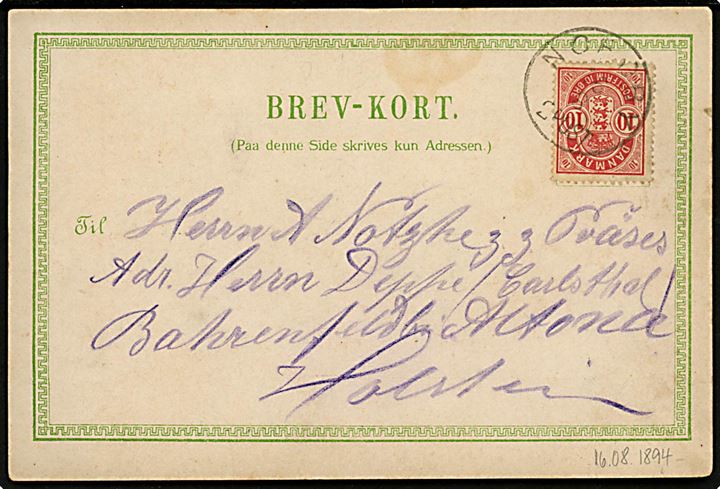 BREV-KORT.
(Paa denne Side skrives kun Adressen.)
POSTFRIM 10 ØRE
10 10
DANMARK
Til Herrn A
Adr. Herrn Deppe / Carlsthal /
Bahrenfeld b/ Altona
Holstein
16.08.1894